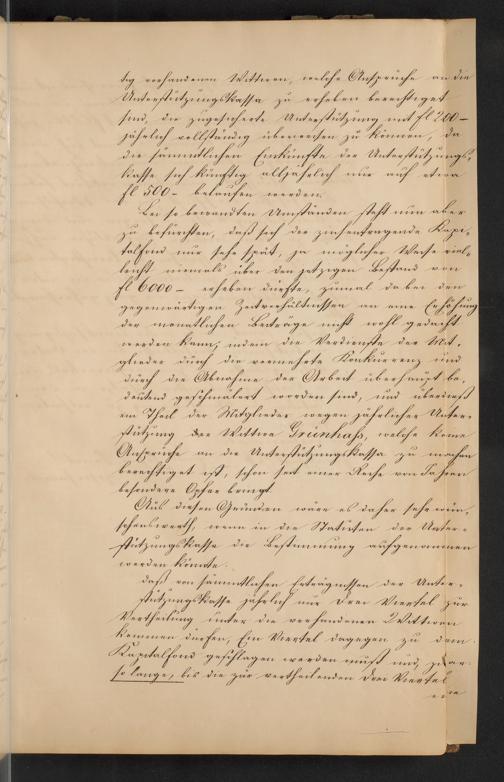 tig vorhandenen Wittwen, welche Ansprüche an die
Unterstützungskassa zu erheben berechtiget
sind, die zugesicherte Unterstützung mit fl 200 –
jährlich vollständig überreichen zu können, da
die sämmtlichen Einkünfte der Unterstützungs-
kassa sich künftig alljährlich nur auf etwa
fl 500 – belaufen werden.
Bei so bewandten Umständen steht nun aber
zu befürchten, daß sich der zinsentragende Kapi-
talfond nur sehr spät, ja möglicher Weise viel-
leicht niemals über den jetzigen Bestand von
fl 6000 – erheben dürfte, zumal da bei den
gegenwärtigen Zeitverhältnissen an eine Erhöhung
der monatlichen Beiträge nicht wohl gedacht
werden kann, indem die Verdienste der Mit-
glieder durch die vermehrte Konkurrenz und
durch die Abnahme der Arbeit überhaupt be-
deutend geschmälert worden sind, und überdieß
ein Theil der Mitglieder wegen jährlicher Unter-
stützung der Wittwe Grünhaß, welche keine
Ansprüche an die Unterstützungskassa zu machen
berechtiget ist, schon seit einer Reihe von Jahren
besondere Opfer bringt.
Aus diesen Gründen wäre es daher sehr wün-
schenswerth, wenn in die Statuten der Unter-
stützungskasse die Bestimmung aufgenommen
werden könnte:
daß von sämmtlichen Erträgnissen der Unter-
stützungskasse jährlich nur Drei Viertel zur
Vertheilung unter die vorhandenen Wittwen
kommen dürfen, Ein Viertel dagegen zu dem
Kapitalfond geschlagen werden muß und zwar
so lange, bis die zur vertheilenden Drei Viertel
eine